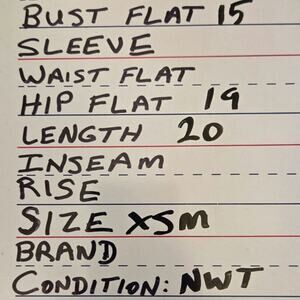 BUST FLAT 15
SLEEVE
WAIST FLAT
HIP FLAT 19
LENGTH 20
INSEAM
RISE
SIZE XSM
BRAND
CONDITION: NWT